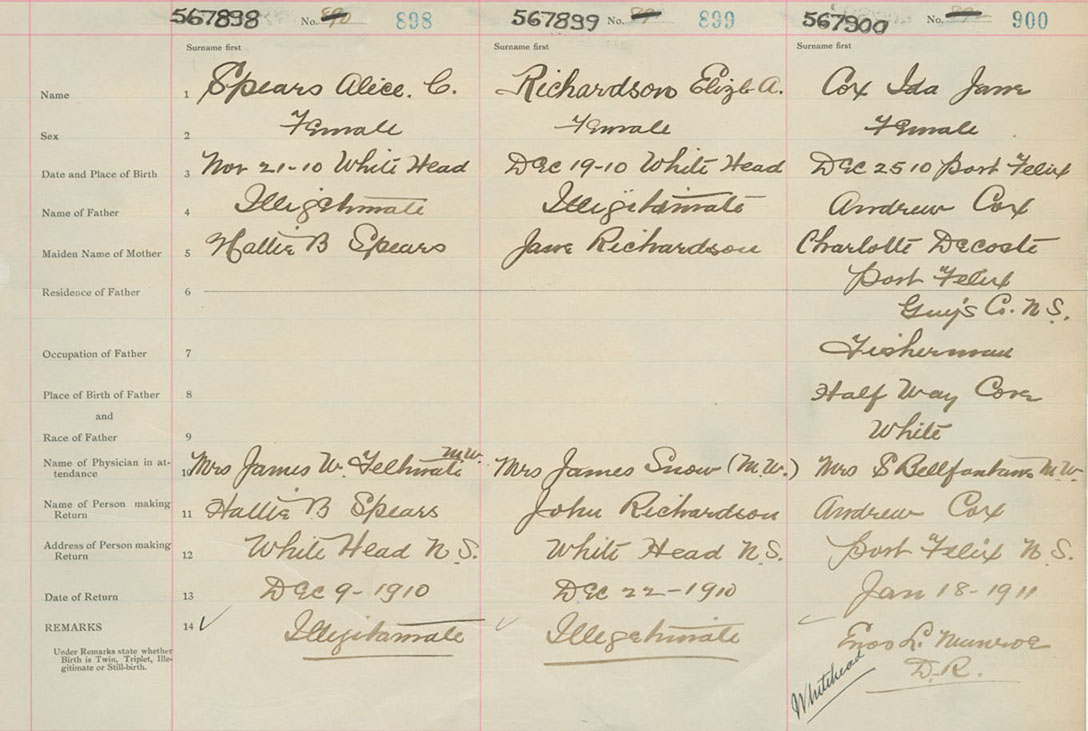 567898 No. 898 567899 No. 899 567900 No. 900
Surname first Surname first Surname first
Name 1 Spears Alice. C. Richardson Elizb A. Cox Ida Jane
Sex 2 Female Female Female
Date and Place of Birth 3 Nov 21-10 White Head Dec 19-10 White Head Dec 25 10 Port Felix
Name of Father 4 Illigetimate Illigitamate Andrew Cox
Maiden Name of Mother 5 Hattie B Spears Jane Richardson Charlotte Decoste
Residence of Father 6 Port Felix
Guy's Co. N S.
Occupation of Father 7 Fisherman
Place of Birth of Father 8 Half Way Cove
and
Race of Father 9 White
Name of Physician in at-
tendance 10 Mrs James W. M.W. Mrs James Snow (M.W.) Mrs S M.W.
Name of Person making
Return 11 Hattie B Spears John Richardson Andrew Cox
Address of Person making
Return 12 White Head N.S. White Head N.S. Port Felix N.S.
Date of Return 13 Dec 9-1910 Dec 22-1910 Jan 18-1911
REMARKS 14 Illegitamate Illegetimate Enos L. Munroe
Under Remarks state whether
Birth is Twin, Triplet, Ille-
gitimate or Still-birth.
D.R.
Whitehead